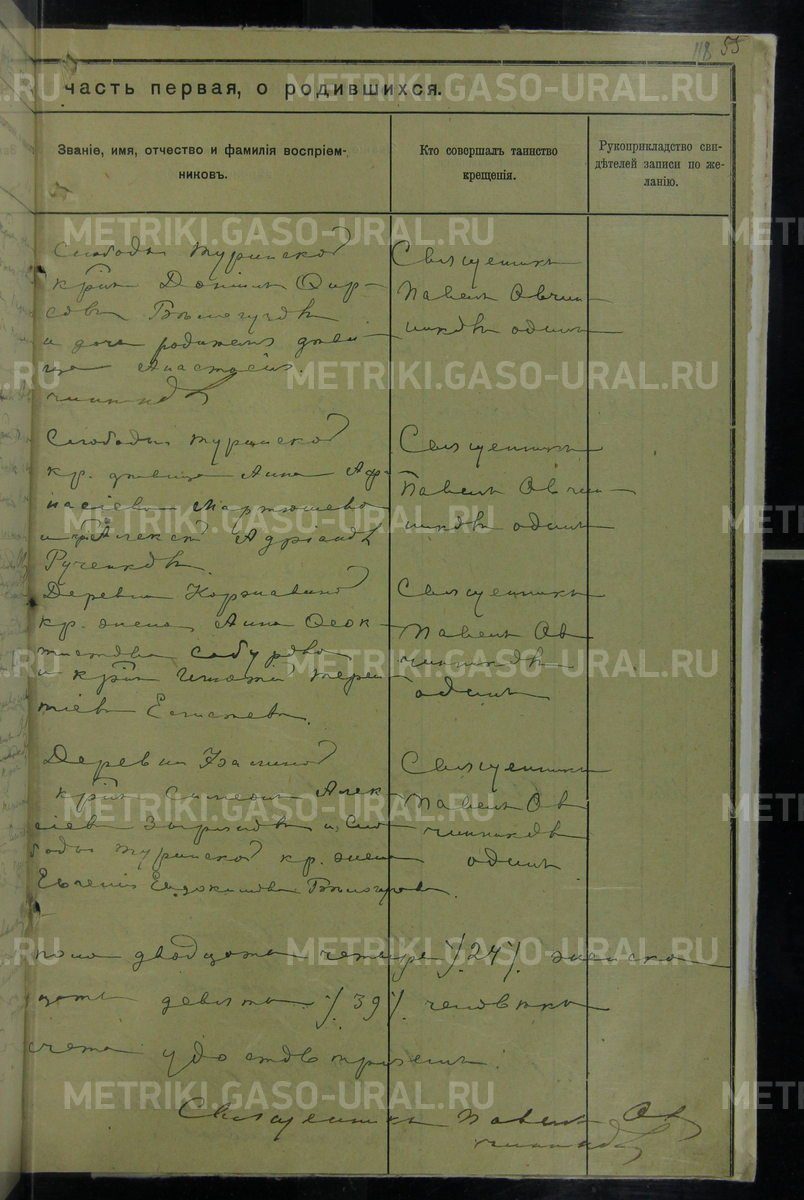 118 55
часть первая, о родившихся.
Званіе, имя, отчество и фамилія воспріем-
никовъ.
Кто совершалъ таинство
крещенія.
Рукоприкладство сви-
дѣтелей записи по же-
ланію.
Слободы Туринской
крн Даніилъ Фир-
совъ Бѣлогузовъ
и дочь родителя дѣви-
ца Анастасія.
Священникъ
Павелъ Овчин-
никовъ одинъ
Слободы Туринской
кр. дѣвица Анна Аф-
насіева Мартюшева
и кр Алексѣй Адріановъ
Рученковъ.
Священникъ
Павелъ Овчин-
никовъ одинъ
Деревни
кр. жена Анна Ѳеок-
тистова Сабурова
и крн Терен-
тіевъ
Священникъ
Павелъ Ов
чинниковъ
одинъ
Деревни
крн Симеонъ Алек-
сіевъ и Сло-
боды Туринской кр. жена
Евгенія Евдокимова
Священникъ
Павелъ Ов
чинниковъ
одинъ
пола двадцать четыре /24/ женска
цать девять /39/ человѣкъ
счета удостовѣряемъ.
Священникъ Павелъ Ов
чинниковъ
METRIKI.GASO-URAL.RU